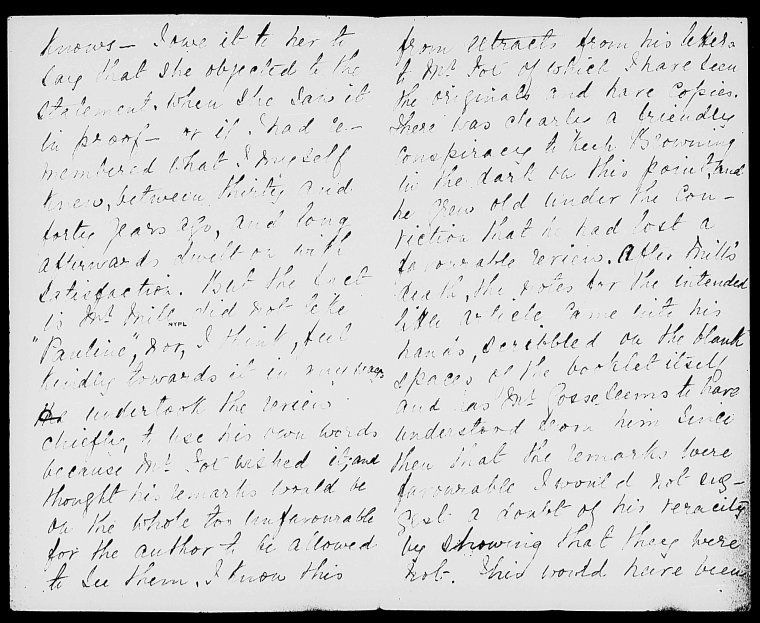 knows— I owe it to her to
say that she objected to the
statement. When she saw it
in proof— or if I had re-
membered what I myself
knew, between thirty and
forty years ago, and long
afterwards dwelt on with
satisfaction. But the fact
is Mr. Mill did not like
NYPL
"Pauline", nor, I think, feel
kindly towards it in any way
He undertook the review
chiefly, to use his own words
because Mr. Fox wished it; and
thought his remarks would be
on the whole too unfavourable
for the author to be allowed
to see them. I know this
from extracts from his letters
to Mr. Fox of which I have seen
the originals and have copies.
There was clearly a friendly
conspiracy to keep Browning
in the dark on this point, and
he grew old under the con-
viction that he had lost a
favourable review. After Mill's
death, the notes for the intended
little article came into his
hands, scribbled on the blank
spaces of the booklet itself
and as Mr. Gosse seems to have
understood from him since
then that the remarks were
favourable I would not sug-
gest a doubt of his veracity
by showing that they were
not. This would have been